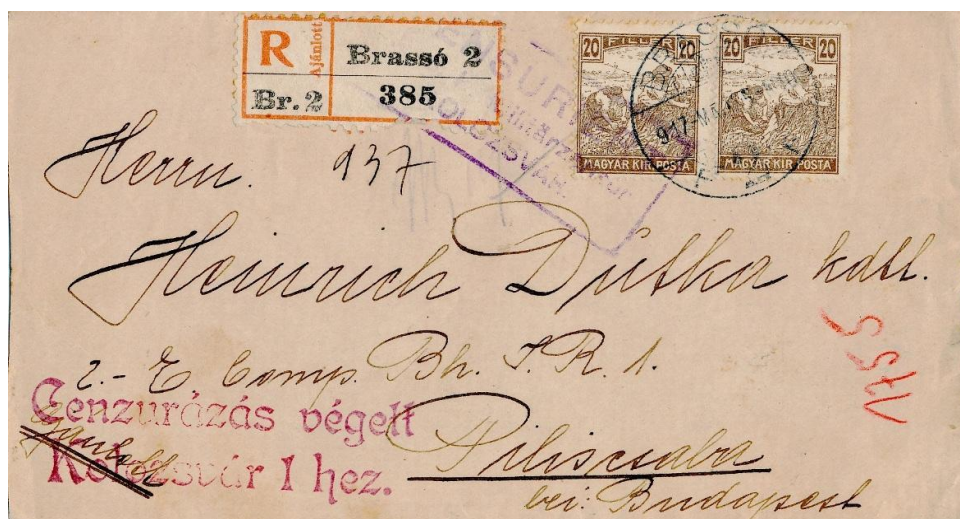 R Ajánlott Brassó 2
Br. 2 385
20 FILLÉR 20
MAGYAR KIR. POSTA
20 FILLÉR 20
MAGYAR KIR. POSTA
BRASSÓ
917
KOLOZSVÁR
Herrn. 937
Heinrich Dutka kdtt.
2.- E Comp. Bh. I.R. 1.
Cenzurázás végett
Kolozsvár 1 hez.
Piliscsaba
bei: Budapest